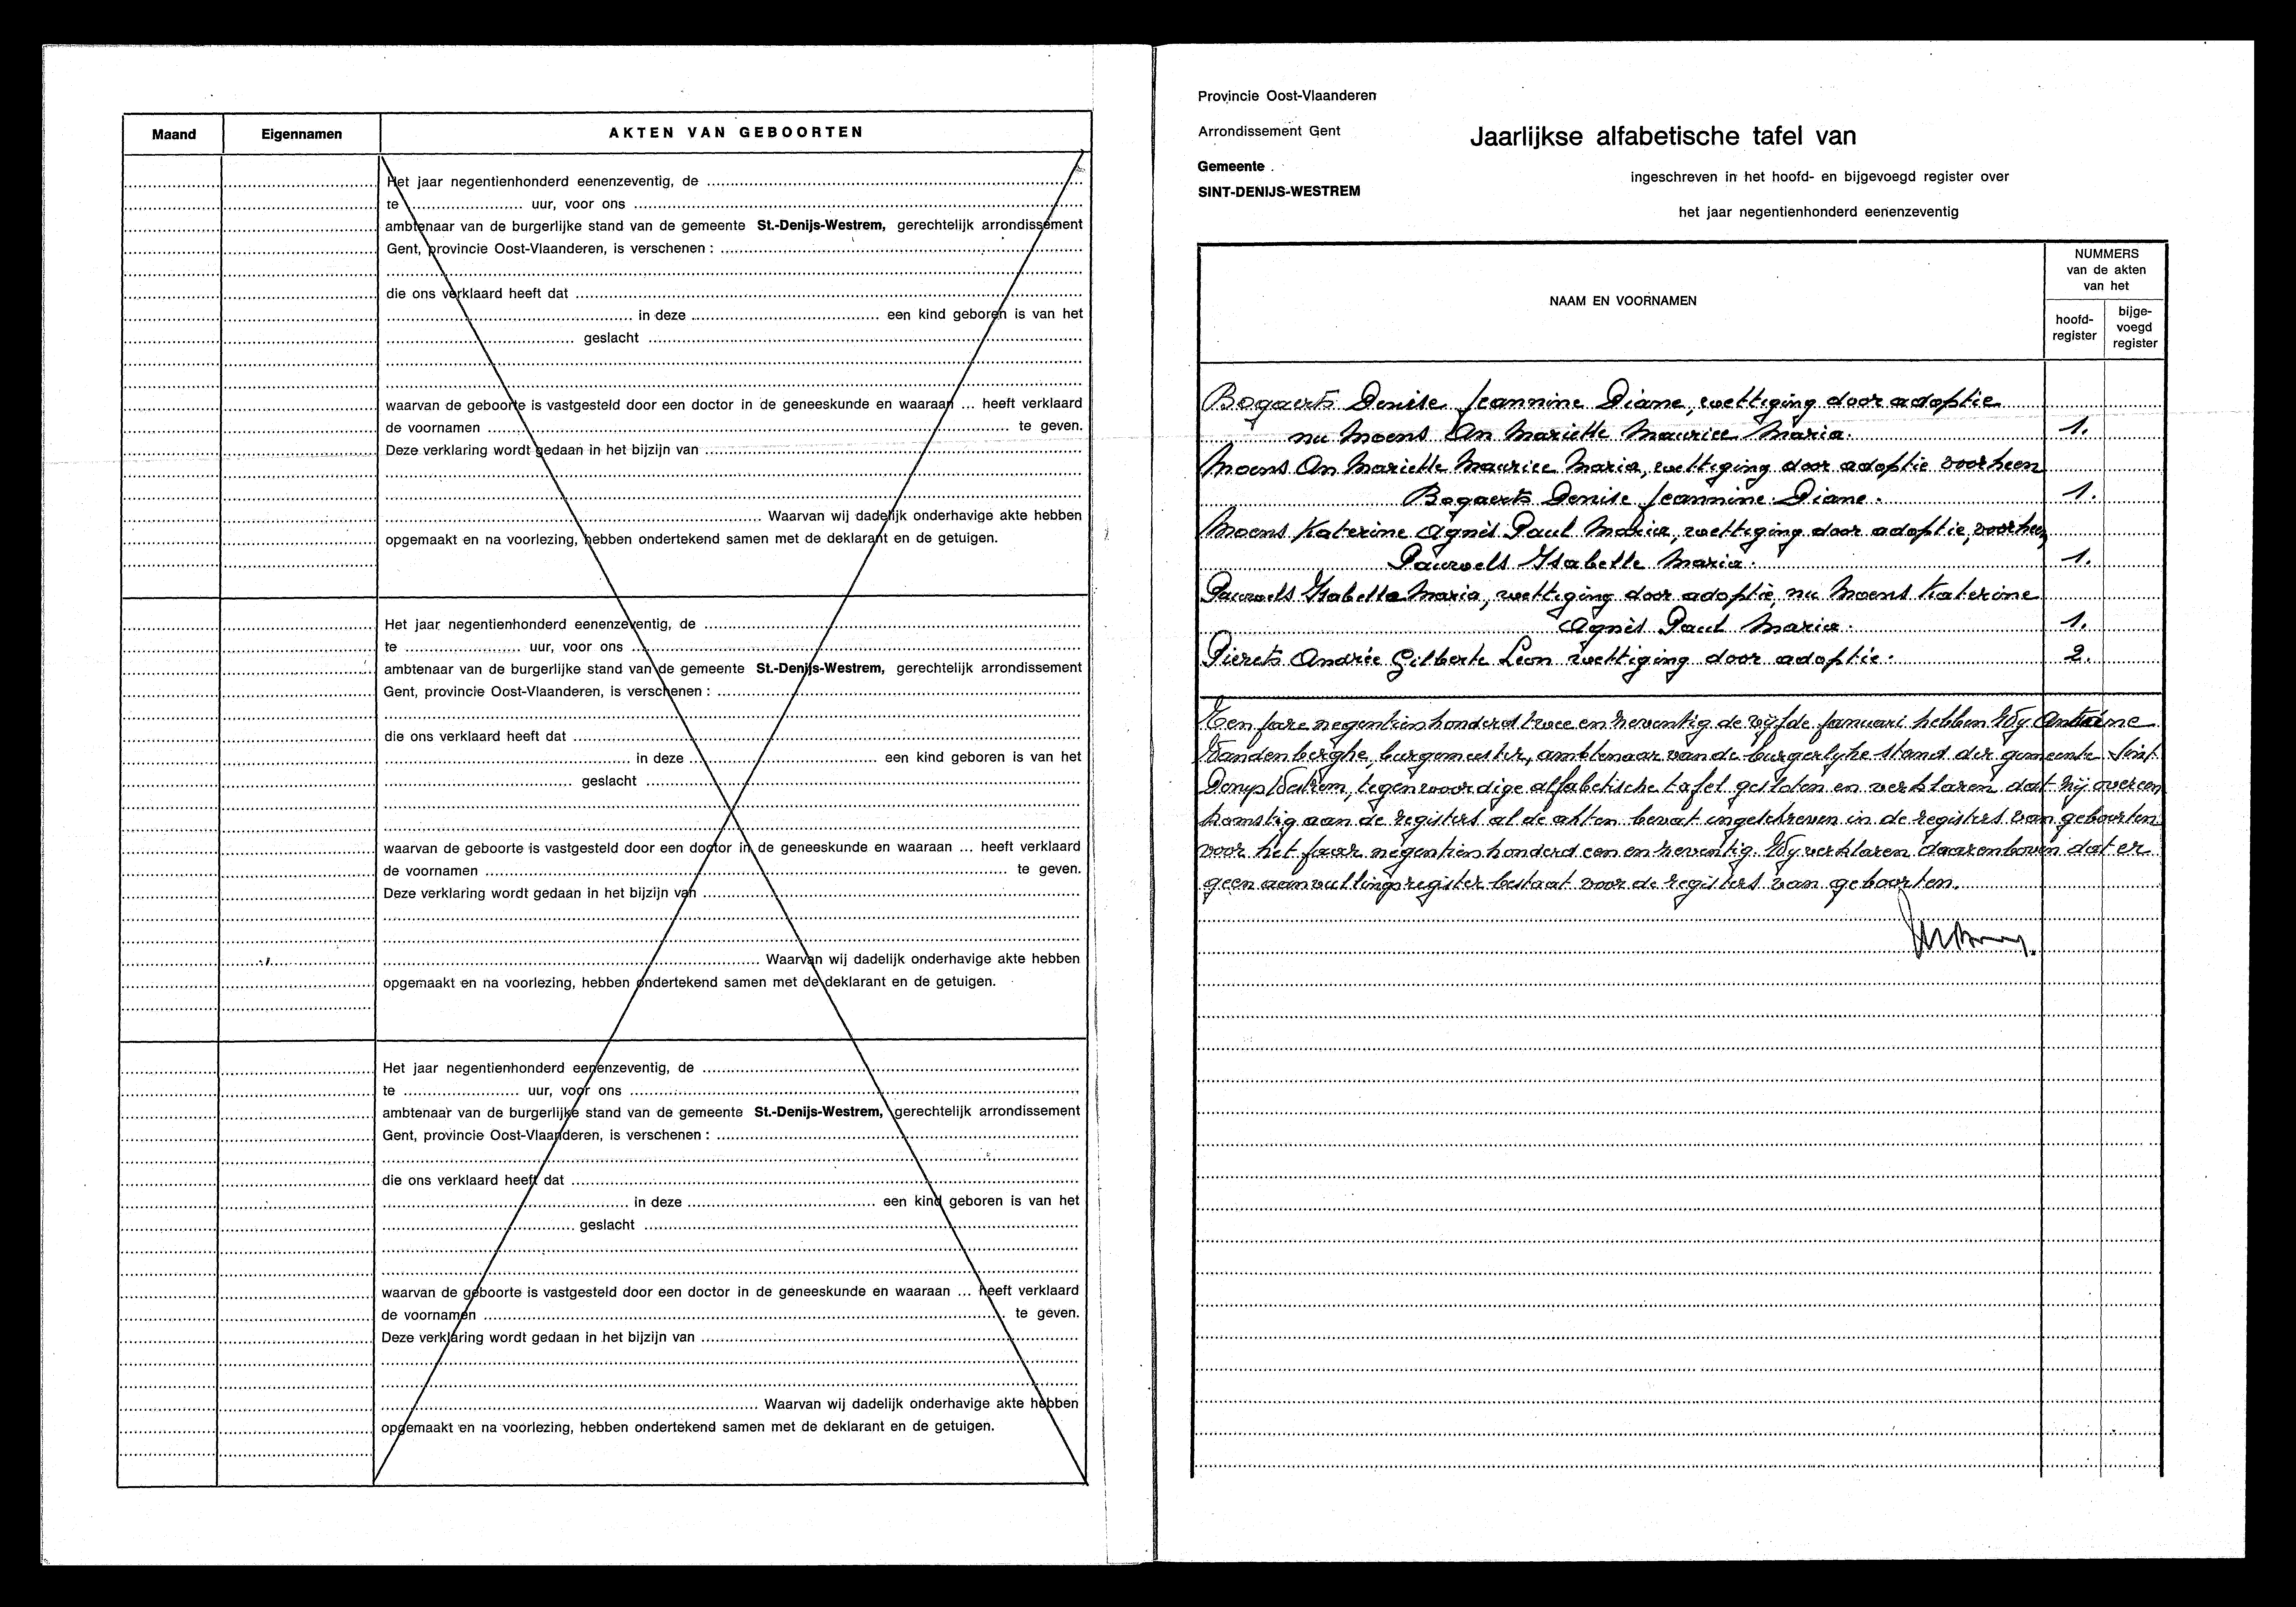 Maand Eigennamen AKTEN VAN GEBOORTEN
Het jaar negentienhonderd eenenzeventig, de
te uur, voor ons
ambtenaar van de burgerlijke stand van de gemeente St.-Denijs-Westrem, gerechtelijk arrondissement
Gent, provincie Oost-Vlaanderen, is verschenen :
die ons verklaard heeft dat
in deze een kind geboren is van het
geslacht
waarvan de geboorte is vastgesteld door een doctor in de geneeskunde en waaraan ... heeft verklaard
de voornamen te geven.
Deze verklaring wordt gedaan in het bijzijn van
Waarvan wij dadelijk onderhavige akte hebben
opgemaakt en na voorlezing, hebben ondertekend samen met de deklarant en de getuigen.
Het jaar negentienhonderd eenenzeventig, de
te uur, voor ons
ambtenaar van de burgerlijke stand van de gemeente St.-Denijs-Westrem, gerechtelijk arrondissement
Gent, provincie Oost-Vlaanderen, is verschenen :
die ons verklaard heeft dat
in deze een kind geboren is van het
geslacht
waarvan de geboorte is vastgesteld door een doctor in de geneeskunde en waaraan ... heeft verklaard
de voornamen te geven.
Deze verklaring wordt gedaan in het bijzijn van
Waarvan wij dadelijk onderhavige akte hebben
opgemaakt en na voorlezing, hebben ondertekend samen met de deklarant en de getuigen.
Het jaar negentienhonderd eenenzeventig, de
te uur, voor ons
ambtenaar van de burgerlijke stand van de gemeente St.-Denijs-Westrem, gerechtelijk arrondissement
Gent, provincie Oost-Vlaanderen, is verschenen :
die ons verklaard heeft dat
in deze een kind geboren is van het
geslacht
waarvan de geboorte is vastgesteld door een doctor in de geneeskunde en waaraan ... heeft verklaard
de voornamen te geven.
Deze verklaring wordt gedaan in het bijzijn van
Waarvan wij dadelijk onderhavige akte hebben
opgemaakt en na voorlezing, hebben ondertekend samen met de deklarant en de getuigen.
Provincie Oost-Vlaanderen
Arrondissement Gent
Gemeente
SINT-DENIJS-WESTREM
Jaarlijkse alfabetische tafel van
ingeschreven in het hoofd- en bijgevoegd register over
het jaar negentienhonderd eenenzeventig
NAAM EN VOORNAMEN
NUMMERS
van de akten
van het
hoofd-
register
bijge-
voegd
register
Bogaerts Denise Jeannine Diane, wettiging door adoptie
nu Moens An Mariette Maurice Maria. 1.
Moens An Mariette Maurice Maria, wettiging door adoptie voorheen
Bogaerts Denise Jeannine Diane. 1.
Moens Katerine Agnès Paul Maria, wettiging door adoptie, voorheen
Pauwels Ysabelle Maria. 1.
Pauwels Ysabella Maria, wettiging door adoptie, nu Moens Katerine
Agnès Paul Maria. 1.
Pierets Andrée Gilberte Leon wettiging door adoptie. 2.
Ten jare negentienhonderd twee en zeventig de vijfde januari hebben Wij Antoine
Vandenberghe, burgemeester, ambtenaar van de burgerlyke stand der gemeente Sint
Denys Westrem, tegenwoordige alfabetische tafel gesloten en verklaren dat hij overeen
komstig aan de registers al de akten bevat ingeschreven in de registers van geboorten
voor het jaar negentienhonderd een en zeventig. Wij verklaren daarenboven dat er
geen aanvullingsregister bestaat voor de registers van geboorten.